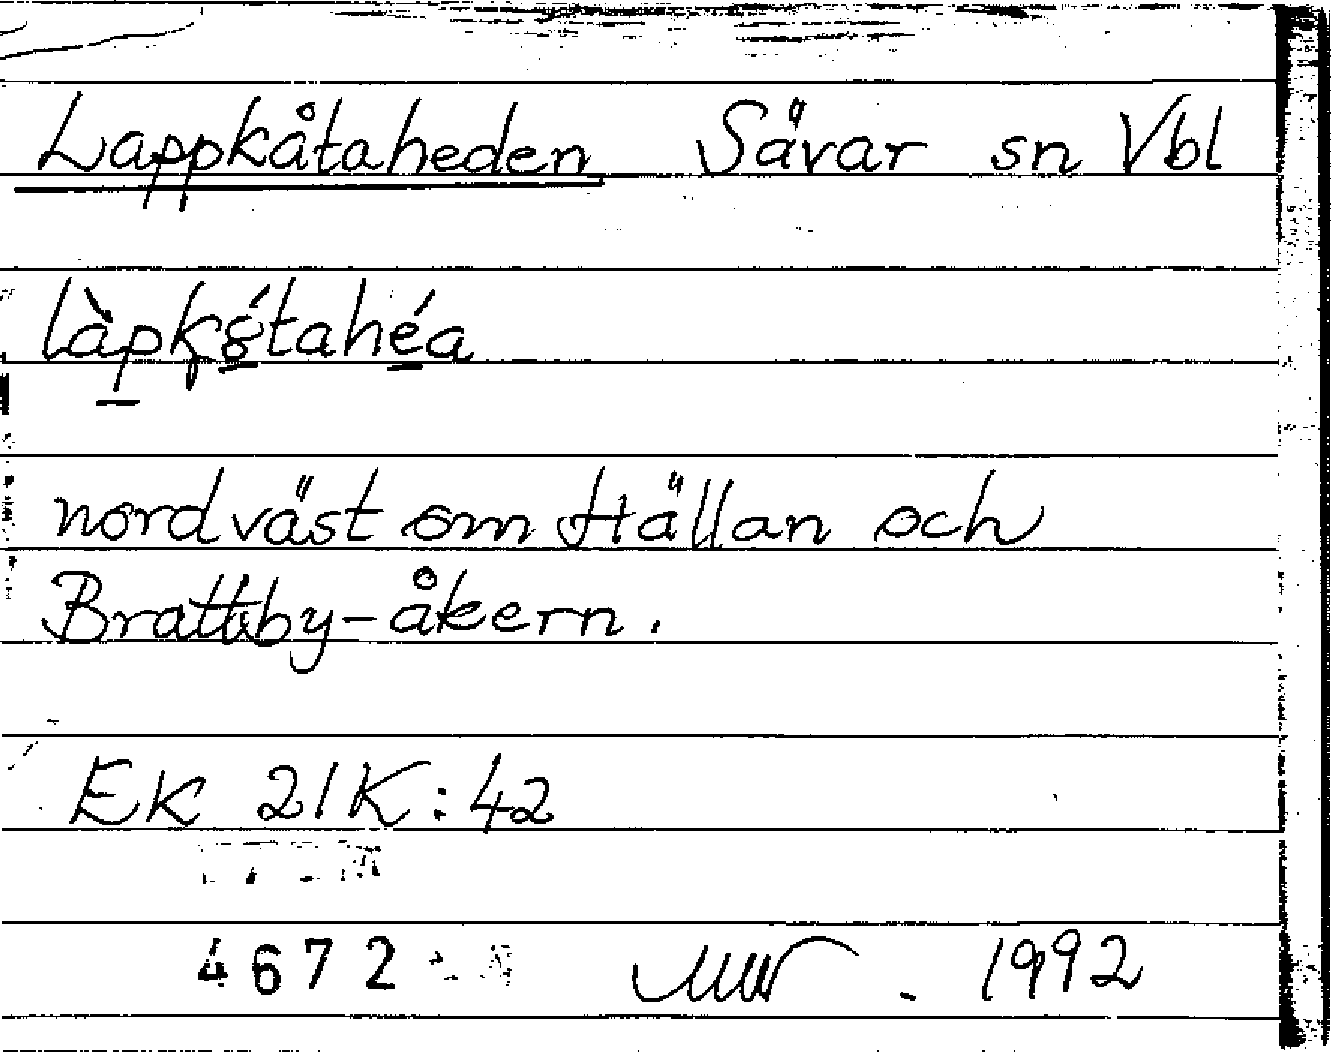 Lappkåtaheden Sävar sn Vbl
làpkǵtahéa
nordväst om Hällan och
Brattby-åkern.
EK 21K:42
4672 1992